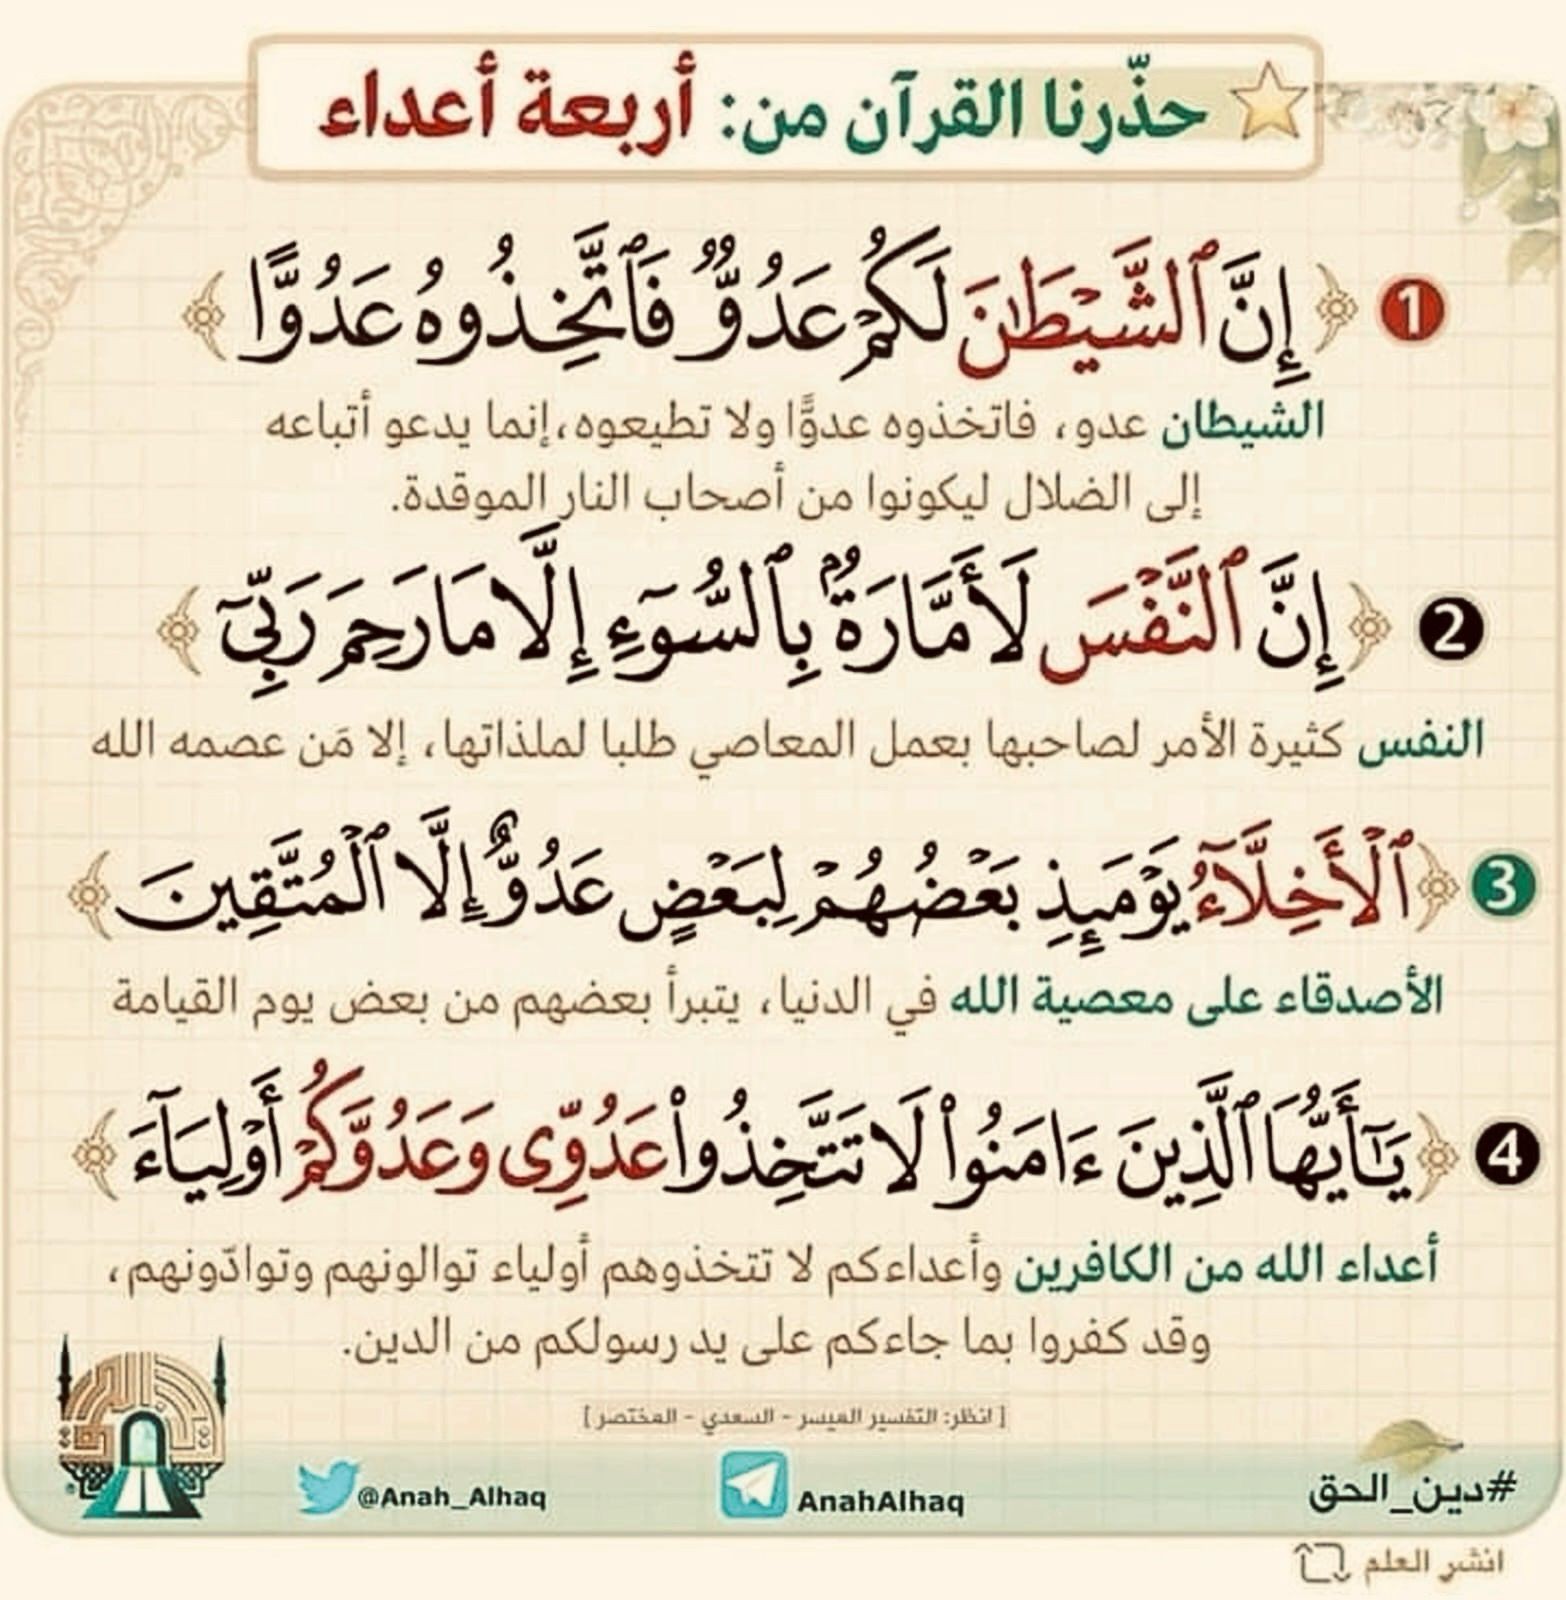 حذّرنا القرآن من: أربعة أعداء
1 ﴿إِنَّ ٱلشَّيْطَٰنَ لَكُمْ عَدُوٌّ فَٱتَّخِذُوهُ عَدُوًّا﴾
الشيطان عدو، فاتخذوه عدوًّا ولا تطيعوه،إنما يدعو أتباعه
إلى الضلال ليكونوا من أصحاب النار الموقدة.
2 ﴿إِنَّ ٱلنَّفْسَ لَأَمَّارَةٌۢ بِٱلسُّوٓءِ إِلَّا مَا رَحِمَ رَبِّىٓ﴾
النفس كثيرة الأمر لصاحبها بعمل المعاصي طلبا لملذاتها، إلا مَن عصمه الله
3 ﴿ٱلْأَخِلَّآءُ يَوْمَئِذٍۭ بَعْضُهُمْ لِبَعْضٍ عَدُوٌّ إِلَّا ٱلْمُتَّقِينَ﴾
الأصدقاء على معصية الله في الدنيا، يتبرأ بعضهم من بعض يوم القيامة
4 ﴿يَٰٓأَيُّهَا ٱلَّذِينَ ءَامَنُوا۟ لَا تَتَّخِذُوا۟ عَدُوِّى وَعَدُوَّكُمْ أَوْلِيَآءَ﴾
أعداء الله من الكافرين وأعداءكم لا تتخذوهم أولياء توالونهم وتوادّونهم،
وقد كفروا بما جاءكم على يد رسولكم من الدين.
[ انظر: التفسير الميسر - السعدي - المختصر ]
#دين_الحق
AnahAlhaq
@Anah_Alhaq
انشر العلم